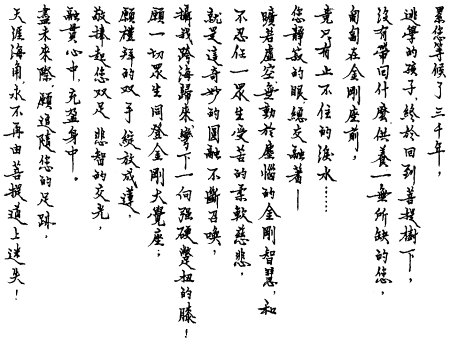 累您等候了三千年，
逃學的孩子終於回到菩提樹下，
沒有帶回什麼供養一無所缺的您，
匍匐在金剛座前，
竟只有止不住的淚水……
您靜寂的眼總交融著—
曠若虛空無動於塵惱的金剛智慧，和
不忍任一眾生受苦的柔軟慈悲，
就是這奇妙的圓融不斷召喚，
攝我跨海歸來彎下一向強硬蹩扭的膝！
願一切眾生同登金剛大覺座；
願禮拜的双手綻放成蓮，
敬捧起您双足悲智的交光，
融貫心中，充盈身中。
盡未來際願追隨您的足跡，
天涯海角，永不再由菩提道上迷失！